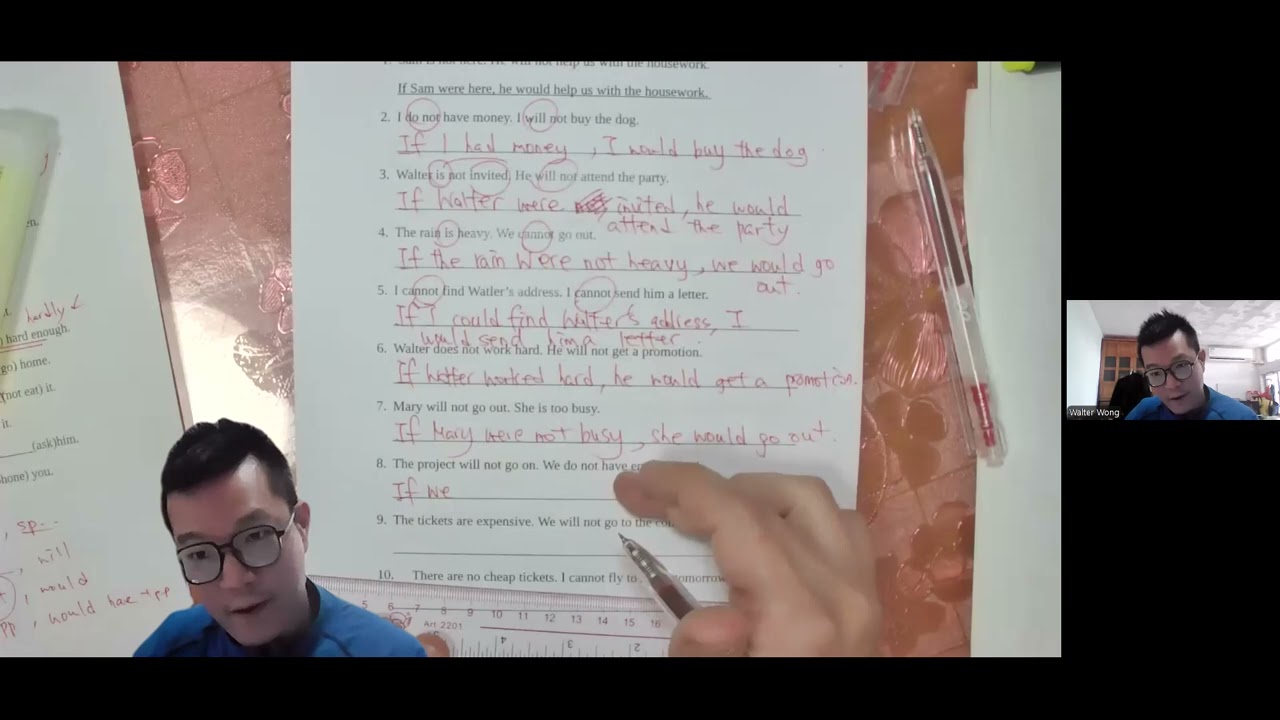 If Sam were here, he would help us with the housework.
2. I do not have money. I will not buy the dog.
If I had money, I would buy the dog.
3. Walter is not invited. He will not attend the party.
If Walter were invited, he would
attend the party
4. The rain is heavy. We cannot go out.
If the rain were not heavy, we would go
out.
5. I cannot find Watler's address. I cannot send him a letter.
If I could find Walter's address, I
would send him a letter.
6. Walter does not work hard. He will not get a promotion.
If worked hard, he would get a pomotion.
7. Mary will not go out. She is too busy.
If Mary were not busy, she would go out.
8. The project will not go on. We do not have
If we
9. The tickets are expensive. We will not go to the
10. There are no cheap tickets. I cannot fly to tomorrow
hardly
hard enough.
go) home.
(not eat) it.
it.
(ask)him.
hone) you.
, sp..
, will
, would
pp, would have + pp
5 6 7 8 9 10 11 12 13 14 15 16
Art 2201
5 4 3 2
Walter Wong